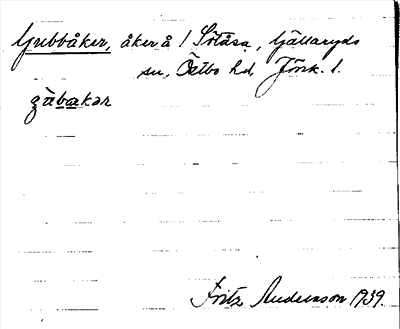 Gubbåker, åker å / Sötåsa, Hjälltaryds
sn, Östbo hd, Jönk. l.
gùbakar
Fritz Andersson 1939.